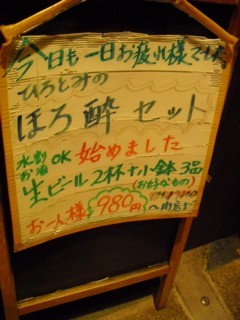 今日も一日お疲れ様でした
ひろとみの
ほろ酔セット
水割 お湯 OK 始めました
生ビール2杯 ナント小鉢3品
(お好きなもの)
お一人様 980円
〜閉店まで